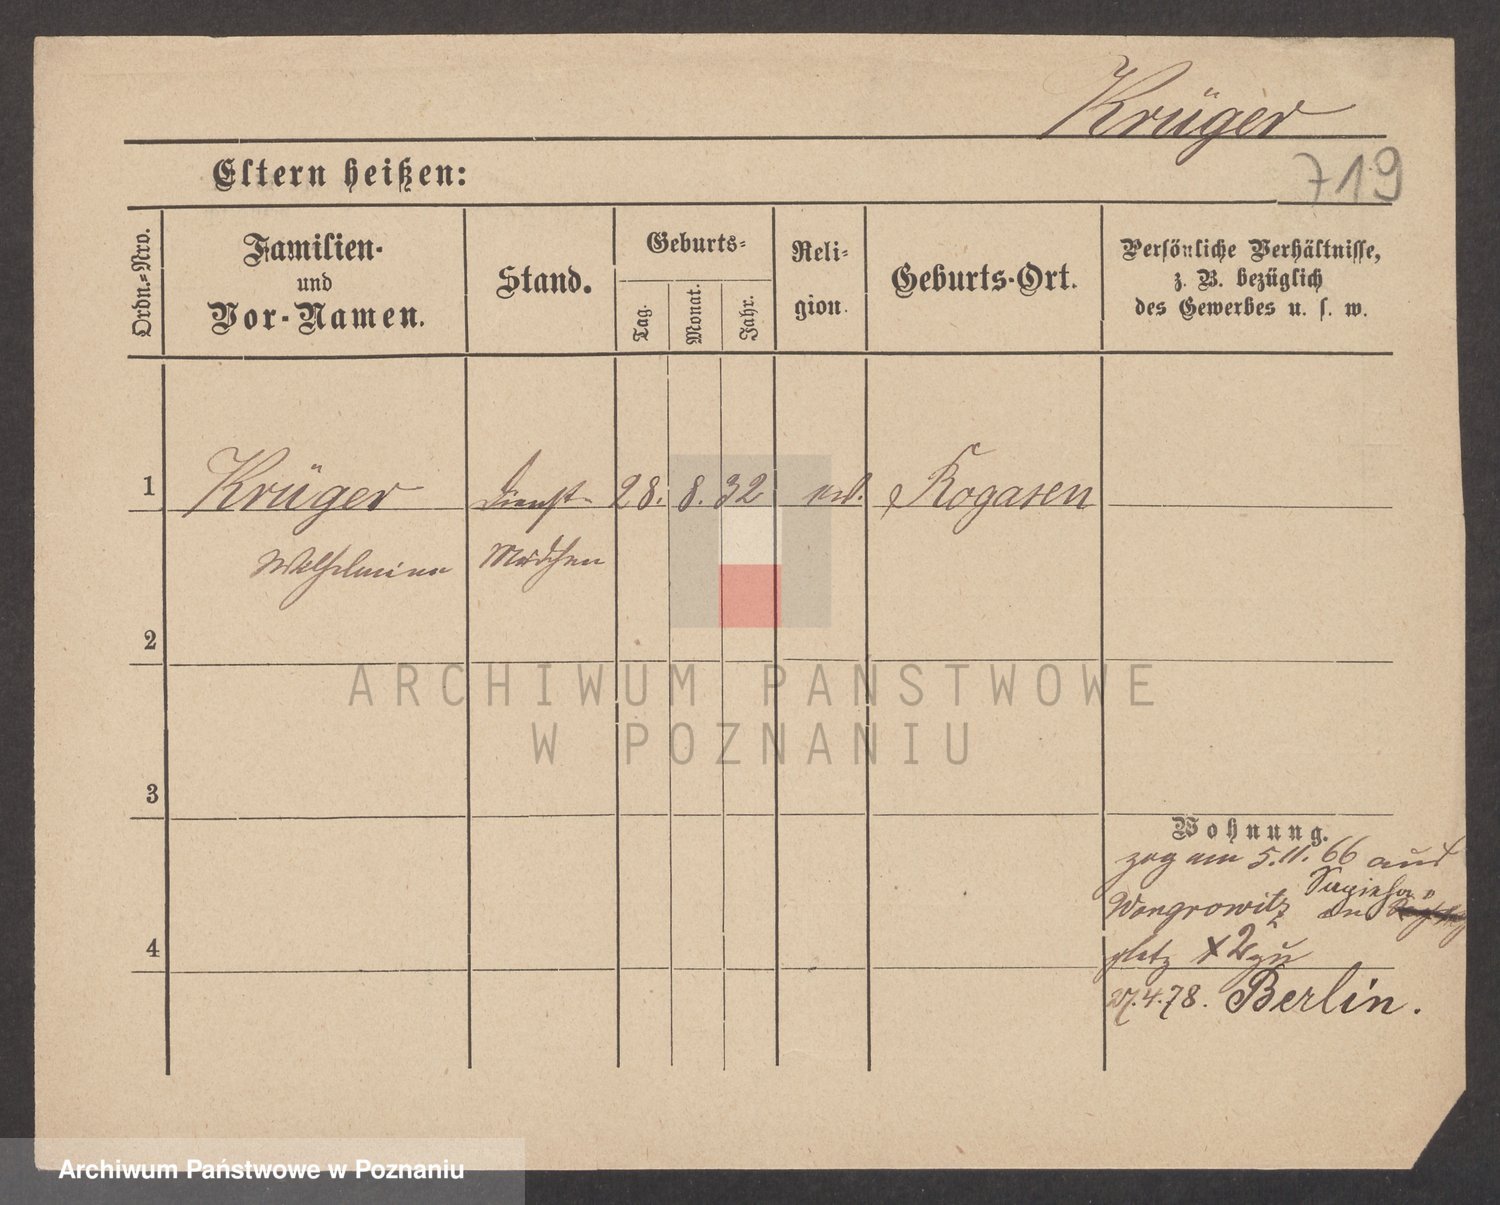 Krüger
719
Eltern heißen:
Ordn.-Nro.
Familien-
und
Vor-Namen.
Stand.
Geburts-
Tag.
Monat.
Jahr.
Reli-
gion.
Geburts-Ort.
Persönliche Verhältnisse,
z. B. bezüglich
des Gewerbes u. s. w.
1 Krüger Dienst- 28. 8. 32 ev. Rogasen
Wilhelmine Mädchen
2
ARCHIWUM PAŃSTWOWE
W POZNANIU
3
Wohnung.
zog am 5.11.66 aus
Sapieha"
Wongrowitz
4
platz 2 zu
27.4.78. Berlin.
Archiwum Państwowe w Poznaniu